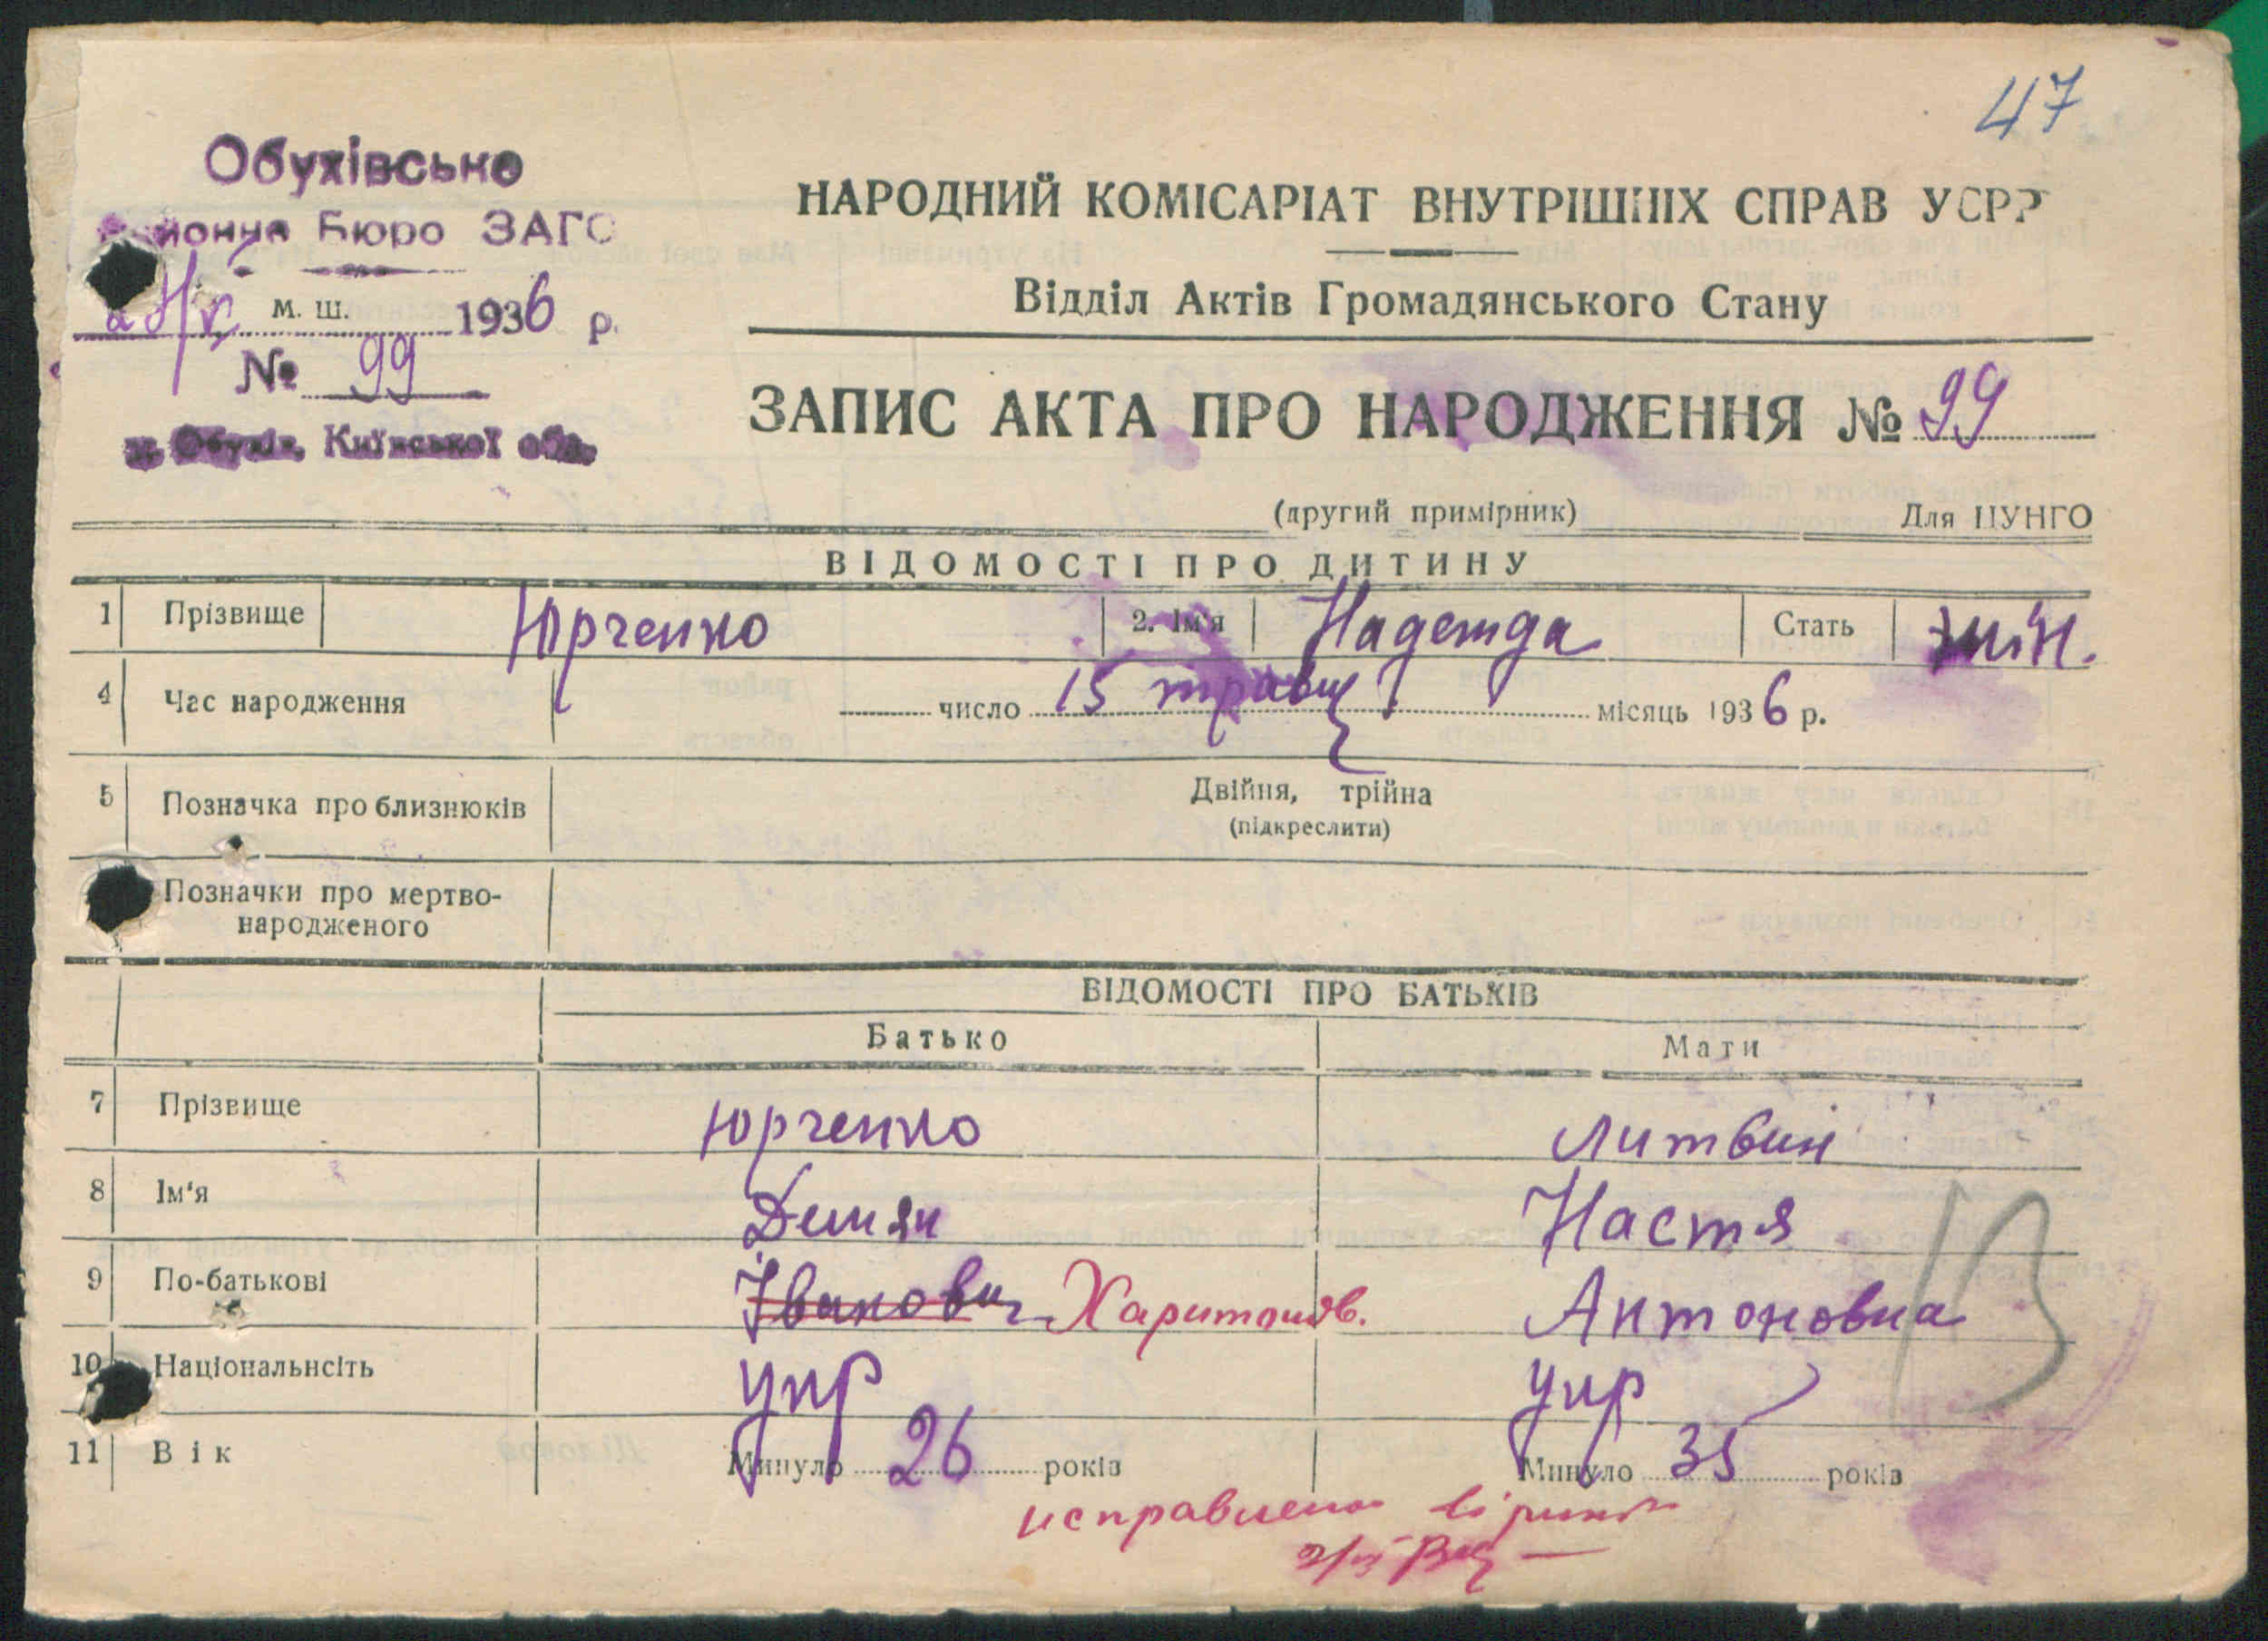 47
Обухівське
Районне Бюро ЗАГС
м. ш. 1936 р.
№ 99
м. Обухів, Київської обл.
НАРОДНИЙ КОМІСАРІАТ ВНУТРІШНІХ СПРАВ УСРР
Відділ Актів Громадянського Стану
ЗАПИС АКТА ПРО НАРОДЖЕННЯ № 99
(другий примірник) Для ЦУНГО
ВІДОМОСТІ ПРО ДИТИНУ
1 Прізвище Юрченко 2. Ім'я Надежда Стать жін.
4 Час народження число 15 травц місяць 1936 р.
5 Позначка про близнюків Двійня, трійна
(підкреслити)
Позначки про мертво-
народженого
ВІДОМОСТІ ПРО БАТЬКІВ
Батько Мати
7 Прізвище Юрченко Литвин
8 Ім'я Демян Настя
9 По-батькові Іванович Харитонов. Антоновна
10 Національнсіть укр укр
11 Вік Минуло 26 років Минуло 35 років
исправлено